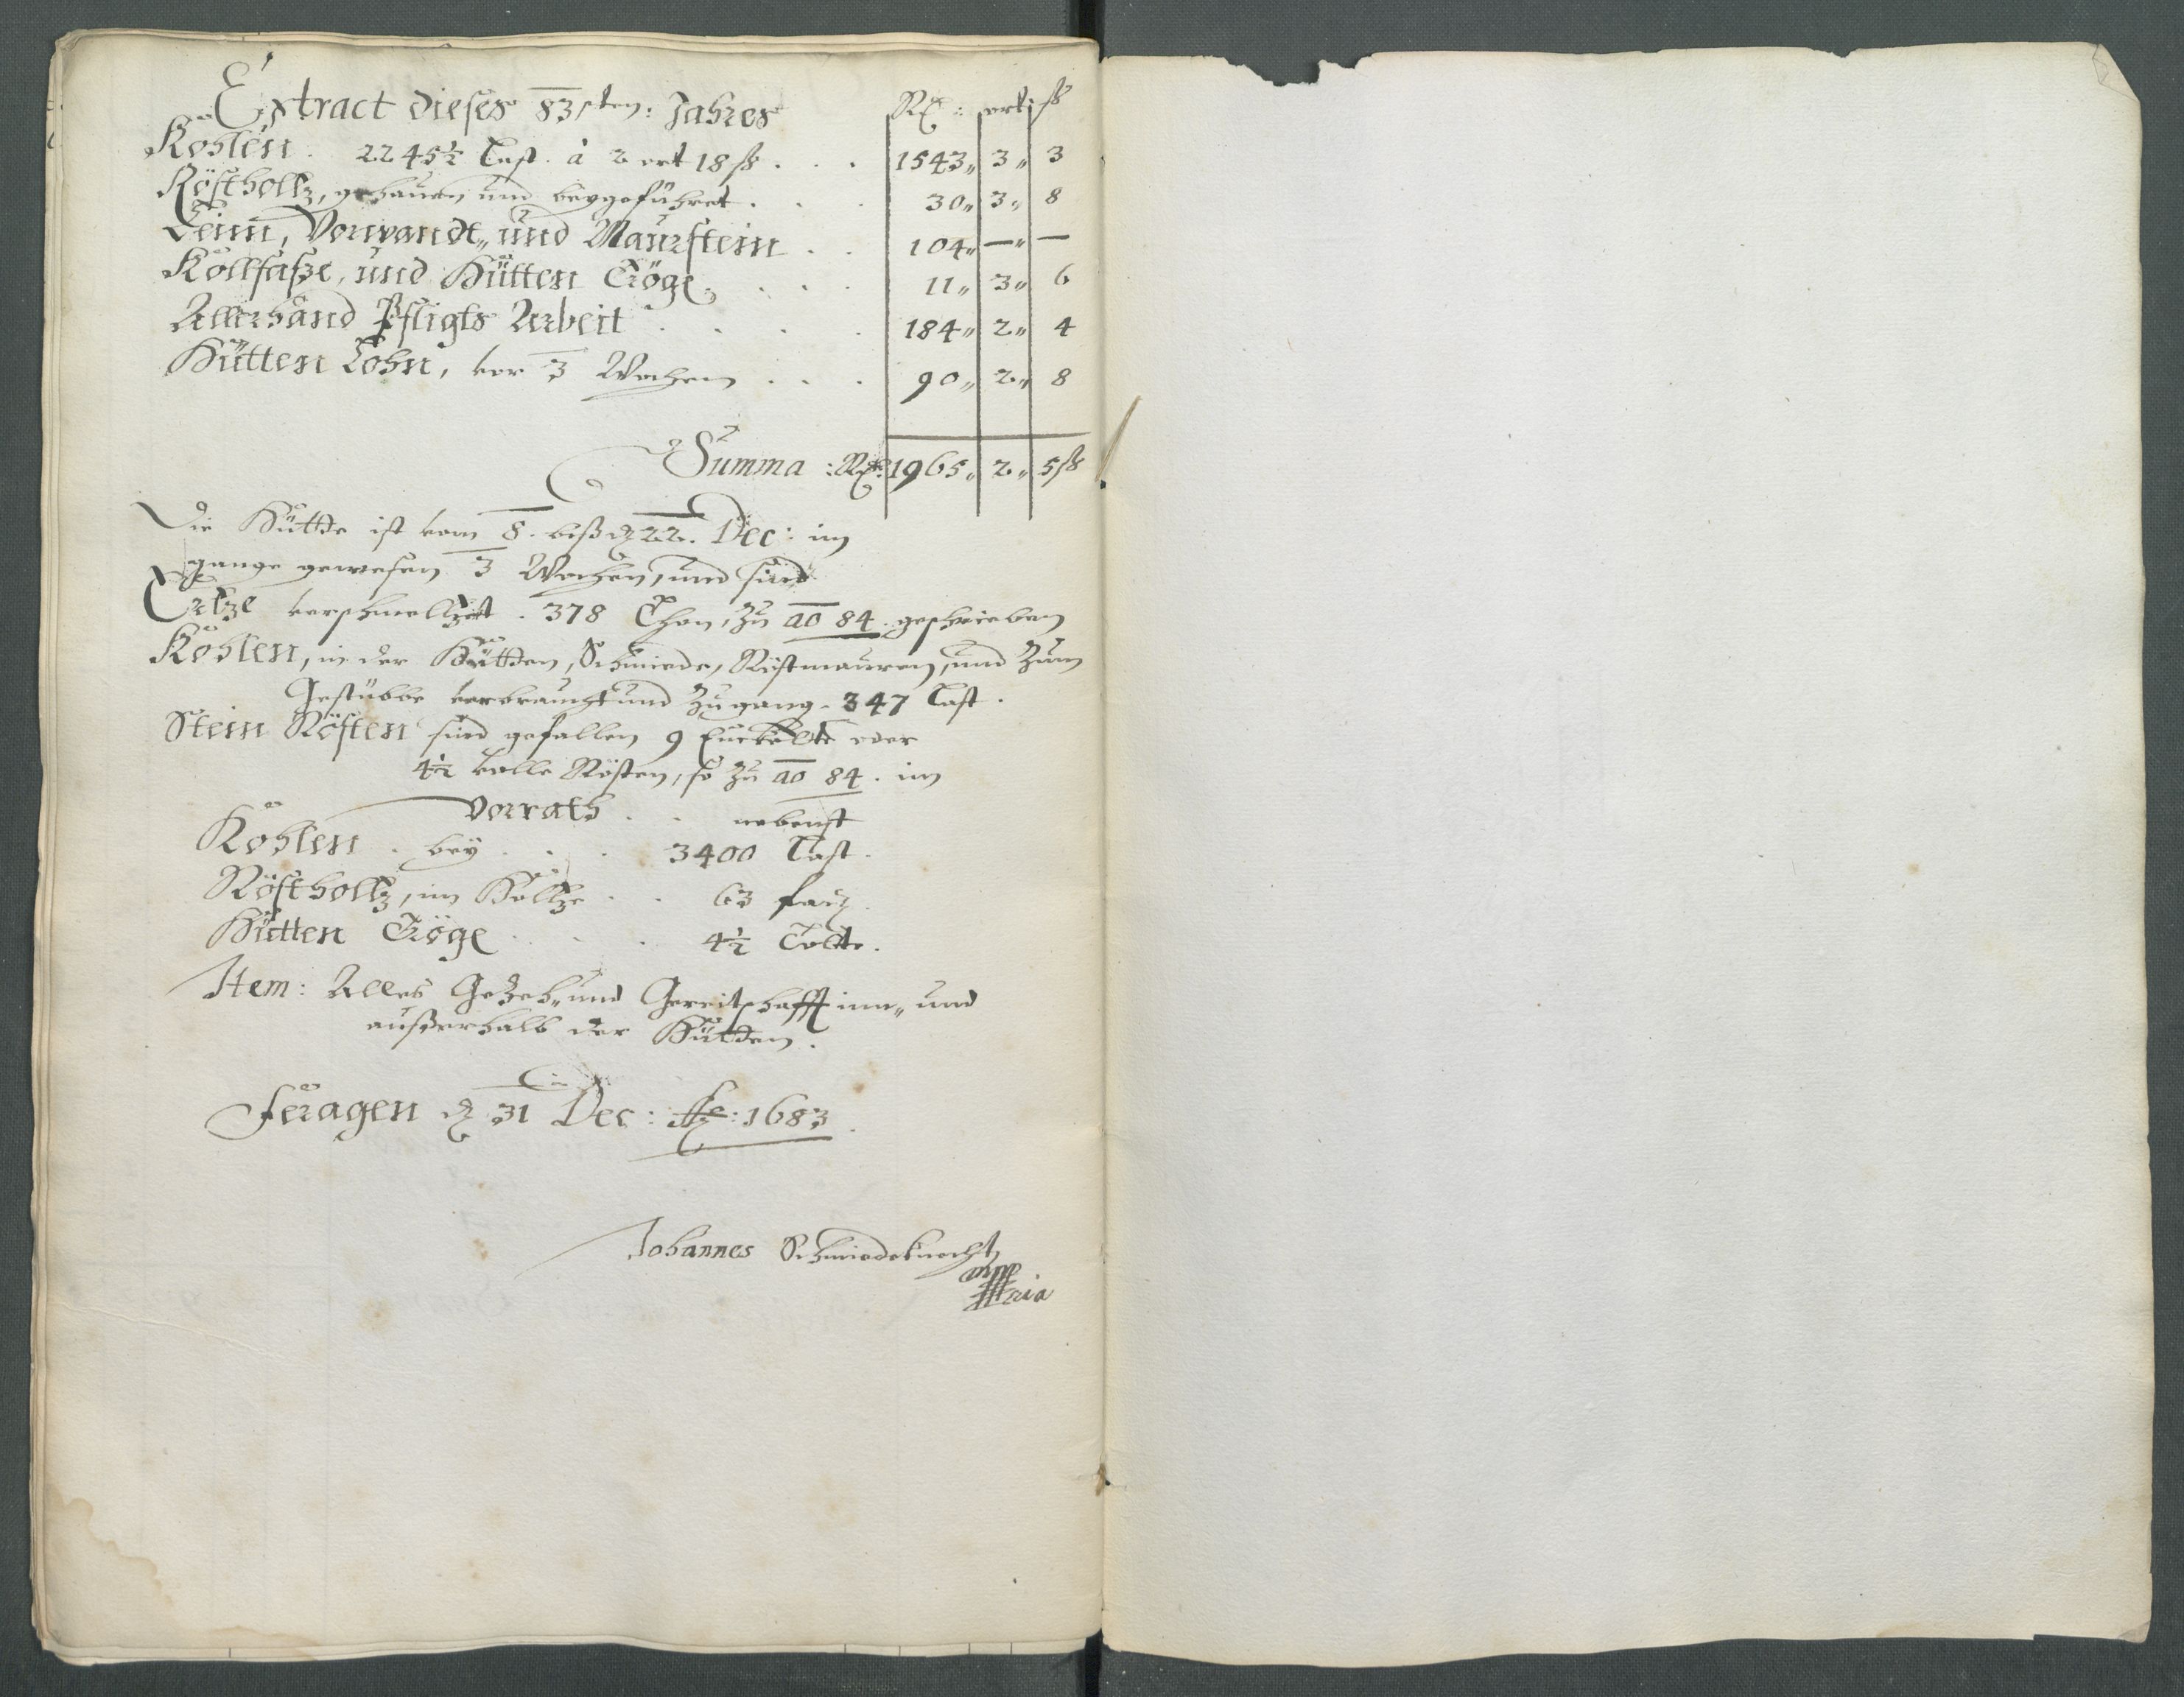 Extract dieses 83sten: Jahres Rx: ort: ß
Kohlen. 2245½ Last. à 2 ort 18 ß . . . 1543„ 3„ 3
Röstholtz, gehauen und beygeführet . . . 30„ 3„ 8
Leim, Vorwandt„ und Maurstein . . 104„ —„ —
Kollfaße, und Hütten Tröge . . . . 11„ 3„ 6
Allerhand Pfligts Arbeit . . . . 184„ 2„ 4
Hütten Lohn, vor 3 Wochen . . . 90„ 2„ 8
Summa: Rx: 1965„ 2„ 5 ß
Die Hütte ist vom 8. biß d 22. Dec: im
gange gewesen 3 Wochen, und sind
Ertze verschmeltzet. 378 Thon, zu ao 84. geschrieben
Kohlen, in der Hütten, Schmiede, Röstmauren, und zum
Gestübbe verbraucht und Zugang. 347 Last.
Stein Rösten sind gefallen 9 oder
4½ volle Rösten, so zu ao 84. im
Vorrath . . nebenst
Kohlen . bey . . . 3400 Last.
Röstholtz, im Holtze . . 63 faɱ
Hütten Tröge . . . 4½ Tolte.
Item: Alles Gezeh„ und Gereitschafft inn„ und
außerhalb der Hütten.
Feragen d 31 Dec: 1683.
Johannes Schmiedeknecht
mppria